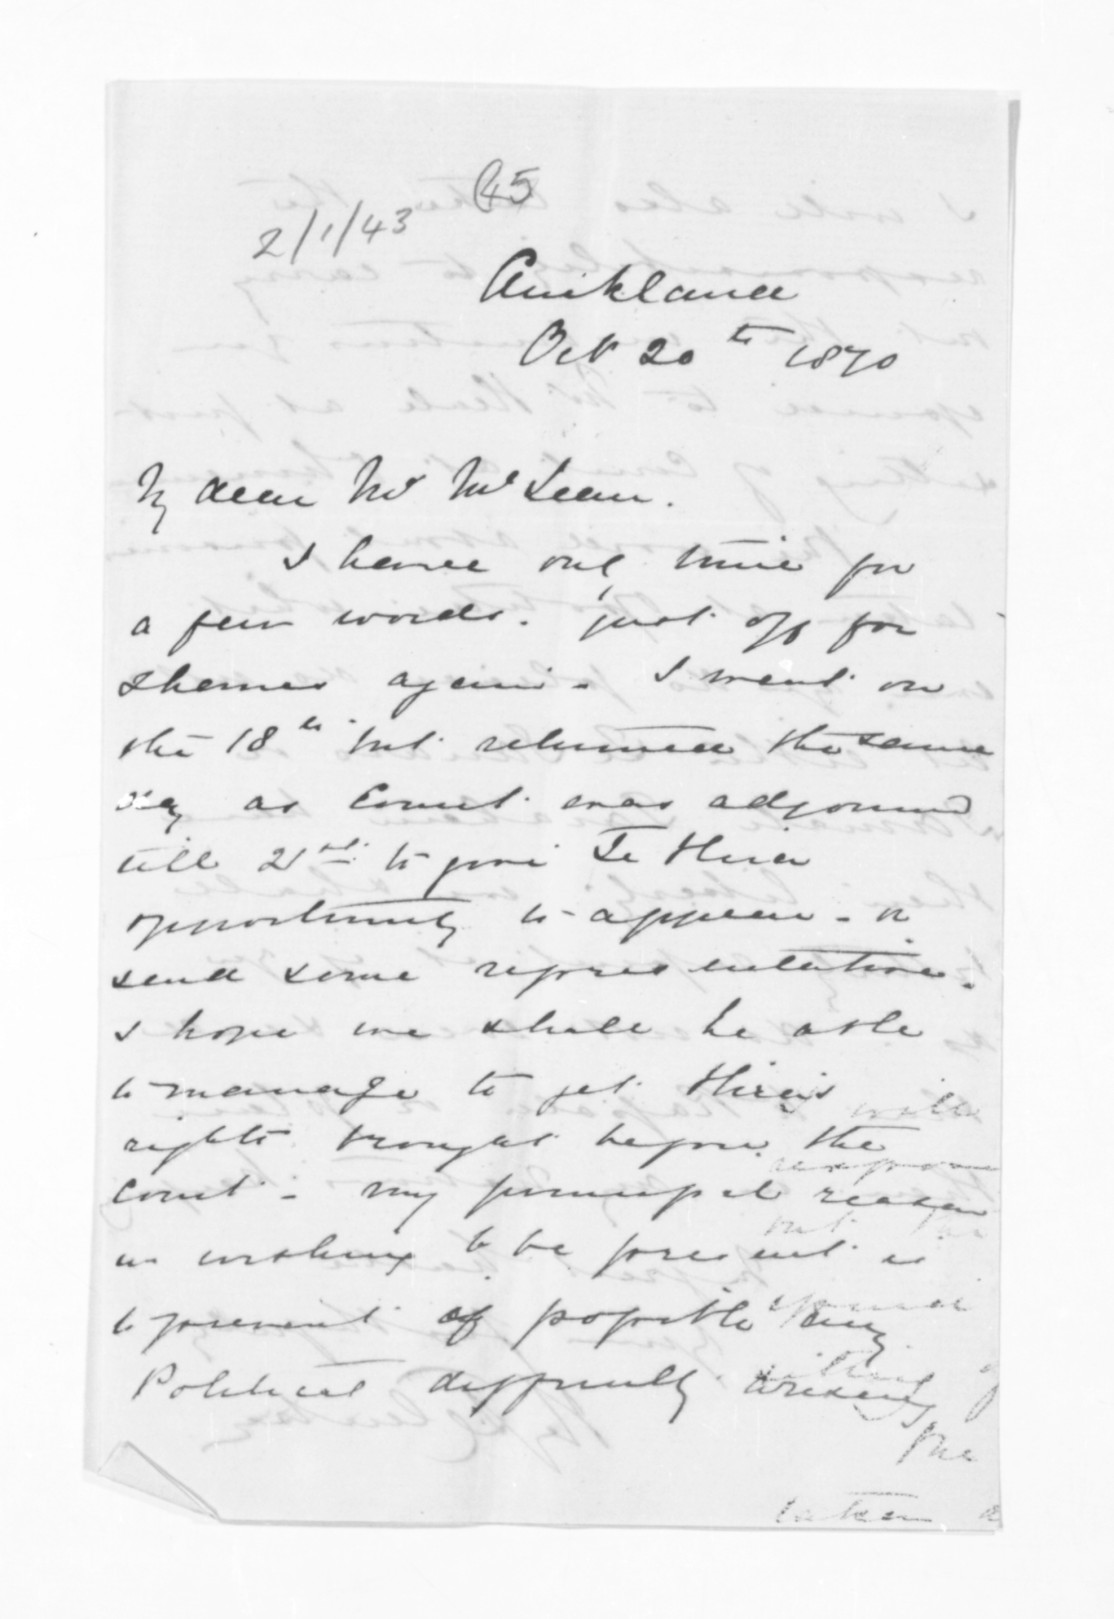 45
2/1/43
Auckland
Oct 20th 1870
My dear Mr McLean.
I have only time for
a few words. just off for
Thames again. I went on
the 18th but returned the same
day as Court was adjourned
till 21st to give Te Hira
opportunity to appear - or
send some representative.
I hope we shall be able
to manage to get Hira's
rights brought before the
Court - My principal reason
in wishing to be present is
to prevent if possible any
Political difficulty arising